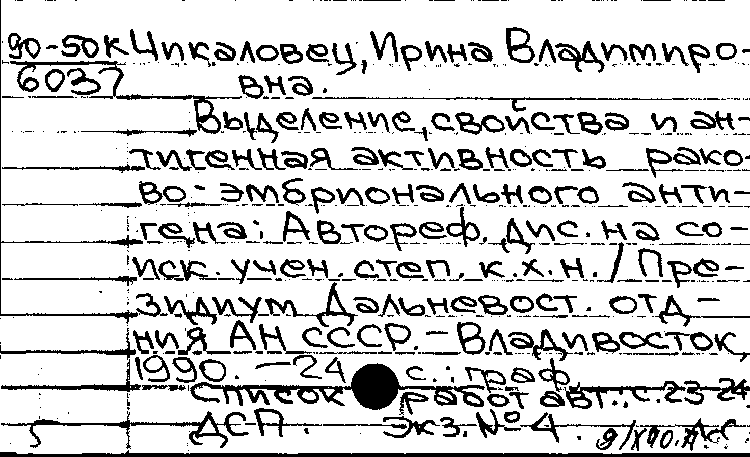 90-50К Чикаловец, Ирина Владимиро-
6037 вна.
Выделение, свойства и ан-
тигенная активность рако-
во-эмбрионального анти-
гена: Автореф. дис. на со-
иск. учен. степ. к.х.н. / Пре-
зидиум Дальневост. отд-
ния АН СССР. - Владивосток,
1990. - 24 с.: граф.
Список работ авт.: с. 23-24.
ДСП. Экз. № 4.
5